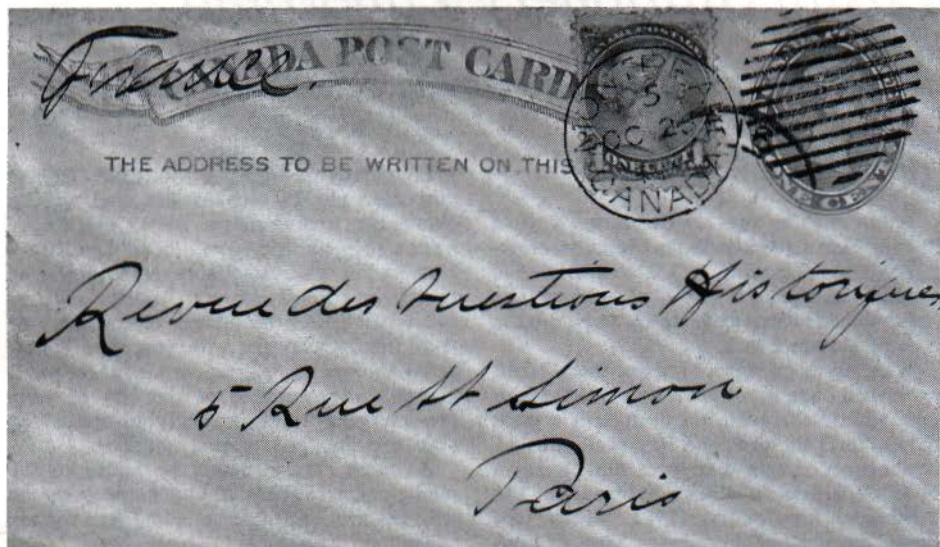 France.
CANADA POST CARD
THE ADDRESS TO BE WRITTEN ON THIS
5
DC 2
CANADA
ONE CENT
Revue des Questions Historiques
5 Rue St Simon
Paris